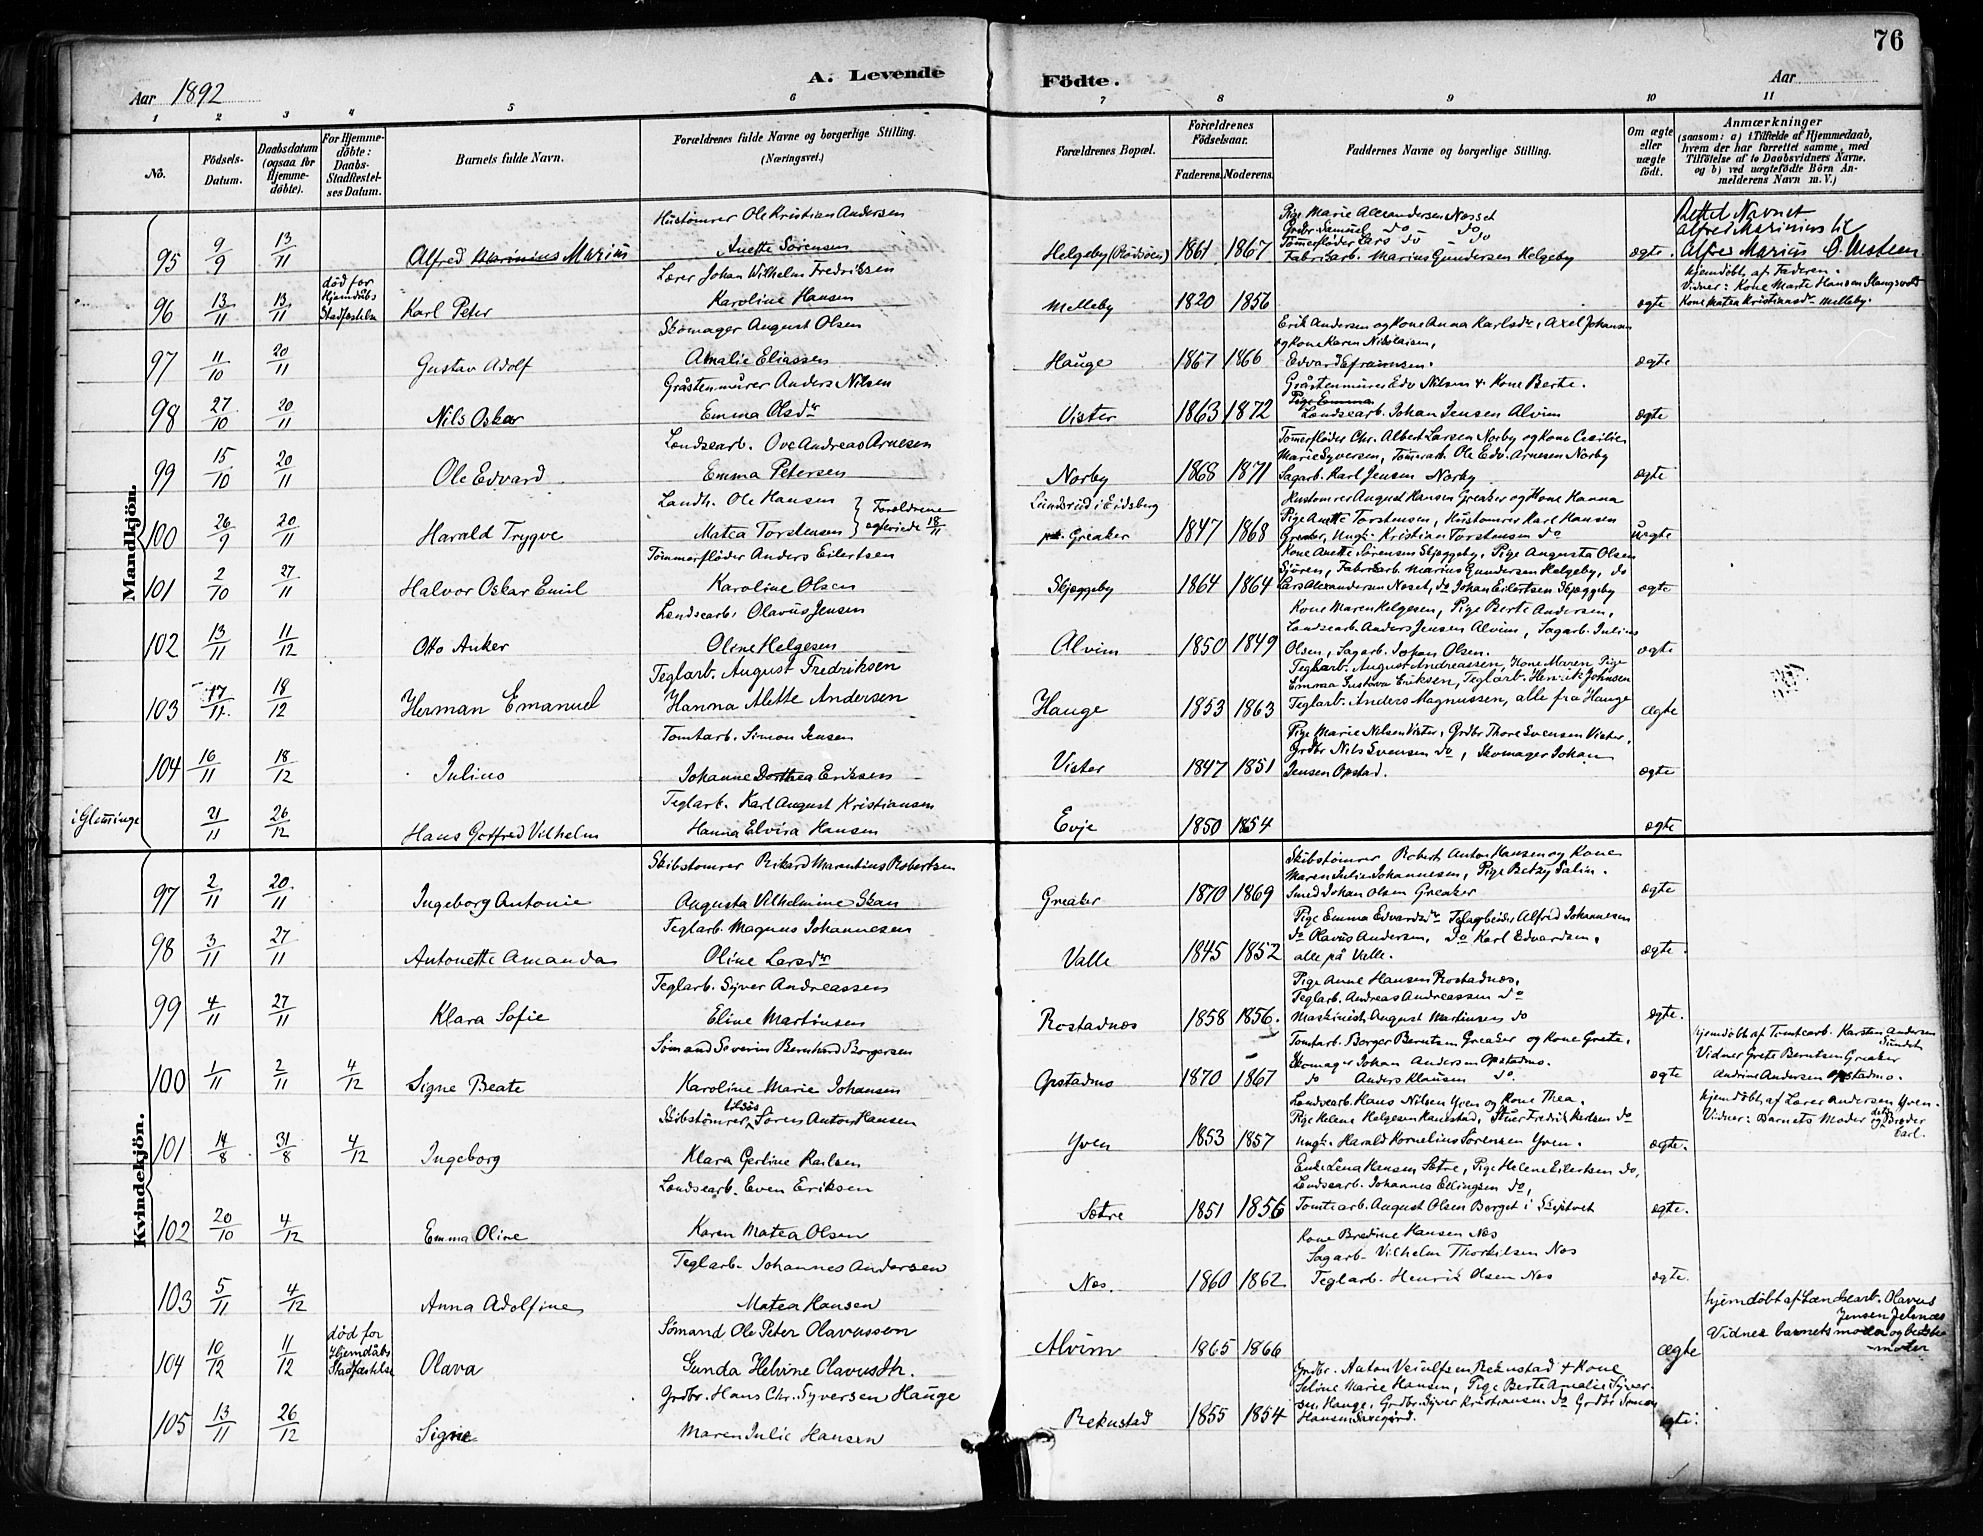 76
A. Levende Födte.
Aar 1892
Aar
1 2 3 4 5 6 7 8 9 10 11
No.
Födsels-Datum.
Daabsdatum (ogsaa for Hjemme-döbte).
For Hjemme-döbte: Daabs-Stadfæstel-ses Datum.
Barnets fulde Navn.
Forældrenes fulde Navne og borgerlige Stilling. (Næringsvei.)
Forældrenes Bopæl.
Forældrenes Födselsaar.
Faderens. Moderens.
Faddernes Navne og borgerlige Stilling.
Om ægte eller uægte födt.
Anmærkninger
(saasom: a) i Tilfælde af Hjemmedaab, hvem der har forrettet samme, med Tilföielse af to Daabsvidners Navne. og b) ved uægtefödte Börn An-melderens Navn m. V.)
Mandkjön.
95 9/9 13/11 Alfred Marinius Marius
Hustömrer Ole Kristian Andersen
Anette Sörensen
Helgeby 1861 1867
Pige Marie Alexandersen Nosset
Grdbr Samuel do do
Tömmerfløder Lars do do
Fabrikarb. Marius Gundersen Helgeby
ægte.
Rettet Navnet
Alfred Marinius til
Alfred Marius
96 13/11 13/11 död for Hjemdåbs Stadfæstelse Karl Peter
Lærer Johan Wilhelm Fredriksen
Karoline Hansen
Melleby 1820 1856 ægte
hjemdöbt af Faderen.
Vidner: Kone Marte Hansen
Kone Matea Kristiansdr Melleby.
97 11/10 20/11 Gustav Adolf
Skomager August Olsen
Amalie Eliassen
Hauge 1867 1866
Erik Andersen og Kone Anna Karlsdr, Axel Johansen
og Kone Karen Nikolaisen,
Edvard Efraimsen.
ægte
98 27/10 20/11 Nils Oskar
Gråstenmurer Anders Nilsen
Emma Olsdr
Vister 1863 1872
Gråstenmurer Edv Nilsen & Kone Berte.
Pige Emma
Landsearb. Johan Jensen Alvim
ægte
99 15/10 20/11 Ole Edvard
Landsearb. Ove Andreas Arnesen
Emma Petersen
Norby 1868 1871
Tömerfløder Chr. Albert Larsen Norby og Kone Cecilie
Marie Syversen, Tömerarb. Ole Edv. Arnesen Norby
Sagarb. Karl Jensen Norby
ægte
100 26/9 20/11 Harald Trygve
Landh. Ole Hansen
Matea Torstensen } Forældrene egteviede 18/11
Lundsrud i Eidsberg
Greaker 1847 1868
Hustomrer August Hansen Greaker og Kone Hanna
Pige Anette Torstensen, Hustomrer Karl Hansen
Greaker, Ungk. Kristian Torstensen do
uægte
101 2/10 27/11 Halvor Oskar Emil
Tömmerfløder Anders Eilertsen
Karoline Olsen
Skjæggeby 1864 1864
Kone Anette Sörensen Skjæggeby, Pige Augusta Olsen
Fabrikarb. Marius Gundersen Helgeby, do
Lars Alexandersen Noset, do Johan Eilertsen Skjæggeby
ægte
102 13/11 11/12 Otto Anker
Landsearb. Olavus Jensen
Oline Helgesen
Alvim 1850 1849
Kone Maren Helgesen, Pige Berte Andersen,
Landsearb. Anders Jensen Alvim, Sagarb. Julius
Olsen, Sagarb. Johan Olsen.
ægte
103 17/11 18/12 Herman Emanuel
Teglarb. August Fredriksen
Hanna Alette Andersen
Hauge 1853 1863
Teglarb. August Andreassen, Kone Maren, Pige
Emma Gustava Eriksen, Teglarb. Henrik Johnsen
Teglarb. Anders Magnussen, alle fra Hauge
ægte
104 16/11 18/12 Julius
Tomtarb. Simon Jensen
Johanne Dorthea Eriksen
Vister 1847 1851
Pige Marie Nilsen Vister, Grdbr Thore Svensen Vister,
Grdbr Nils Svensen do, Skomager Johan
Jensen Opstad.
ægte
i Glemminge 21/11 26/12 Hans Gotfred Vilhelm
Teglarb. Karl August Kristiansen
Hanna Elvira Hansen
Evje 1850 1854 ægte
Kvindekjön.
97 2/11 20/11 Ingeborg Antonie
Skibstömrer Rikard Marentius Robertsen
Augusta Vilhelmine Skau
Greaker 1870 1869
Skibstömrer Robert Anton Hansen og Kone
Maren Julie Johannesen, Pige Betzy Salin.
Smed Johan Olsen Greaker
ægte
98 3/11 27/11 Antonette Amanda
Teglarb. Magnus Johannesen
Oline Larsdr
Valle 1845 1852
Pige Emma Edvardsdr Teglarbeider Alfred Johannesen
do Olavus Andersen, do Karl Edvardsen,
alle på Valle.
ægte.
99 4/11 27/11 Klara Sofie
Teglarb. Syver Andreassen
Eline Martinsen
Rostadnæs 1858 1856.
Pige Anne Hansen Rostadnæs,
Teglarb. Andreas Andreassen do
Maskinist August Martinsen do
ægte.
100 1/11 2/11 4/12 Signe Beate
Sömand Severin Bernhard Borgersen
Karoline Marie Johansen
Opstadmo 1870 1867
Tomtarb. Borger Berntsen Greaker og Kone Grete.
Skomager Johan Andersen Opstadmo.
do Anders Klausen do.
ægte
hjemdöbt af Tomtearb. Karsten Andersen
Vidner Grete Berntsen Greaker
Andrine Andersen Opstadmo.
101 14/8 31/8 4/12 Ingeborg
Skibstömrer Sören Anton Hansen
Klara Gerline Karlsen
Yven 1853 1857
Landsearb. Hans Nilsen Yven og Kone Thea.
Pige Helene Helgesen Haustad, Stuer Fredrik Karlsen do
Ungk. Harald Kornelius Sörensen Yven.
ægte.
hjemdöbt af Lærer Andersen Yven.
Vidner: Barnets Moder og dets Broder
Carl.
102 20/10 4/12 Emma Oline
Landsearb. Even Eriksen
Karen Matea Olsen
Sætre 1851 1856
Enke Lena Hansen Sætre, Pige Helene Eilertsen do,
Landsearb. Johannes Ellingsen do,
Tomtearb. August Olsen Borget i Skiptvet
ægte.
103 5/11 4/12 Anna Adolfine
Teglarb. Johannes Andersen
Matea Hansen
Næs. 1860 1862
Kone Bredine Hansen Næs
Sagarb. Vilhelm Thorkilsen Næs
Teglarb. Henrik Olsen Næs
ægte.
104 10/12 11/12 död for Hjemdåbs Stadfæstelse Olava
Sömand Ole Peter Olavussen
Gunda Helvine Olavusdt.
Alvim 1865 1866 Ægte
hjemdöbt af Landsearb. Olavus
Jensen
Vidner barnets moder og bedste
moder
105 13/11 26/12 Signe
Grdbr. Hans Chr. Syversen Hauge
Maren Julie Hansen
Rekustad 1855 1854
Grdbr. Anton Rekustad & Kone
Marie Hansen, Pige Berte Amalie Syver-
sen Hauge, Grdbr. Syver Kristiansen do Grdbr Simon
Hansen
ægte.